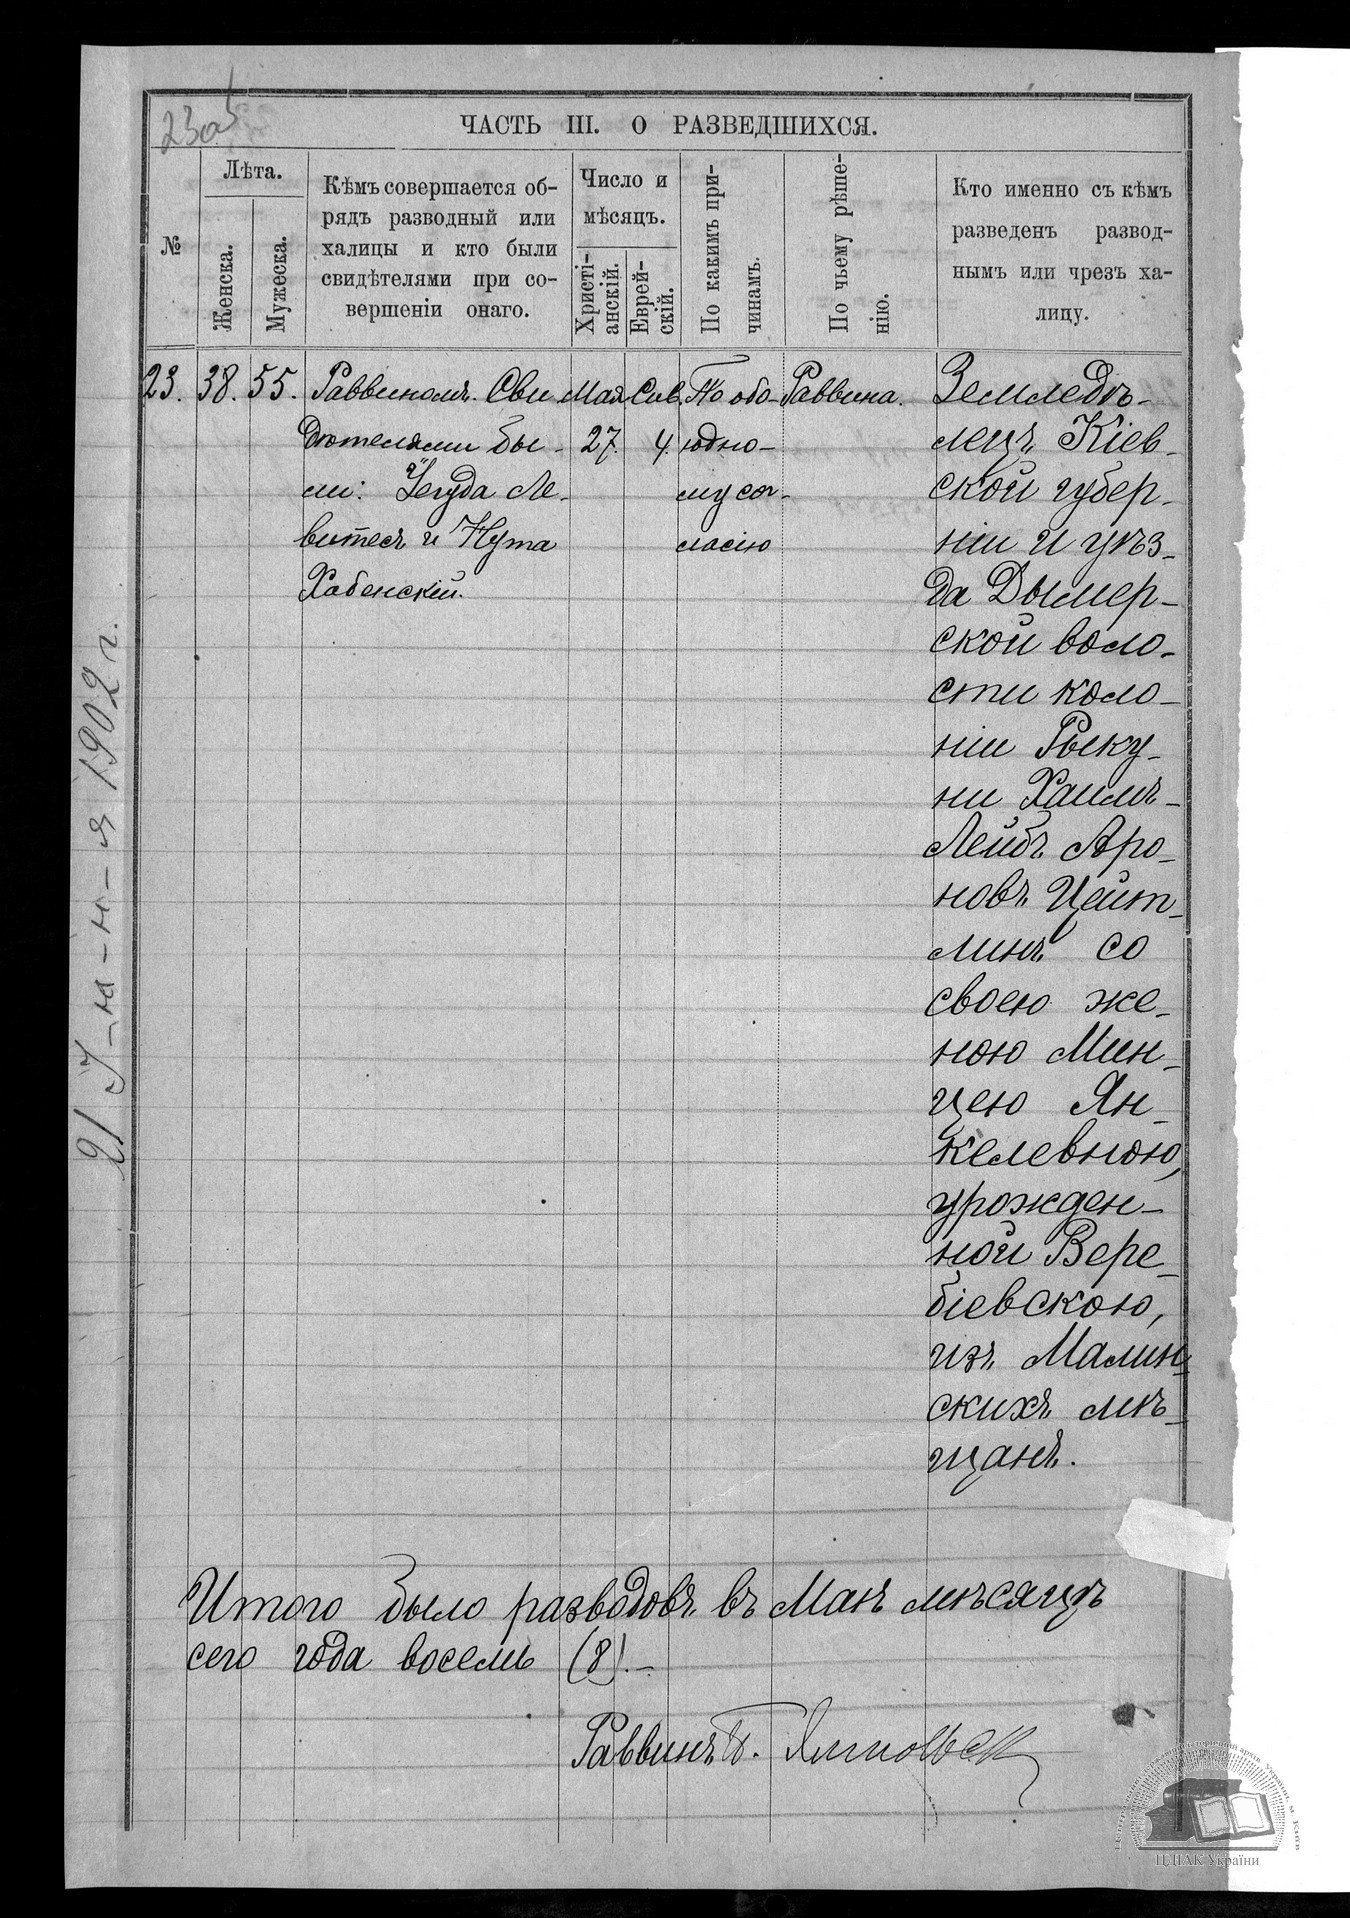 230
ЧАСТЬ III. О РАЗВЕДШИХСЯ.
№
Лѣта.
Женска.
Мужеска.
Кѣмъ совершается об-
рядъ разводный или
халицы и кто были
свидѣтелями при со-
вершеніи онаго.
Число и
мѣсяцъ.
Христі-
анскій.
Еврей-
скій.
По какимъ при-
чинамъ.
По чьему рѣше-
нію.
Кто именно съ кѣмъ
разведенъ развод-
нымъ или чрезъ ха-
лицу.
23.
38.
55.
Раввиномъ. Сви
дѣтелями бы-
ли: Іегуда Ле-
витесъ и Нута
Хабенскій.
Мая
27.
Сив.
4.
По обо-
юдно-
му сог-
ласію
Раввина.
Земледѣ-
лецъ Кіев-
ской губер-
ніи и уѣз-
да Дымер-
ской воло-
сти коло-
ніи Рыку-
ни Хаимъ-
Лейбъ Аро-
новъ Цейт-
линъ со
своею же-
ною Мин-
цею Ян-
келевною,
урожден-
ной Вере-
біевскою,
изъ Малин-
скихъ мѣ-
щанъ.
Итого было разводовъ въ Маѣ мѣсяцѣ
сего года восемь (8).-
Раввинъ
21 І-ю-н-я 1902 г.
ЦДІАК України